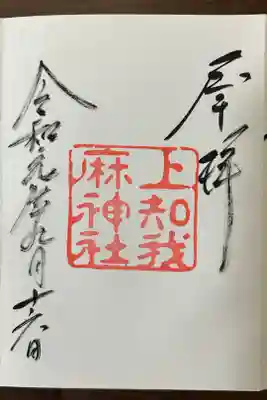 奉拝
上知我
麻神社
令和元年九月十六日